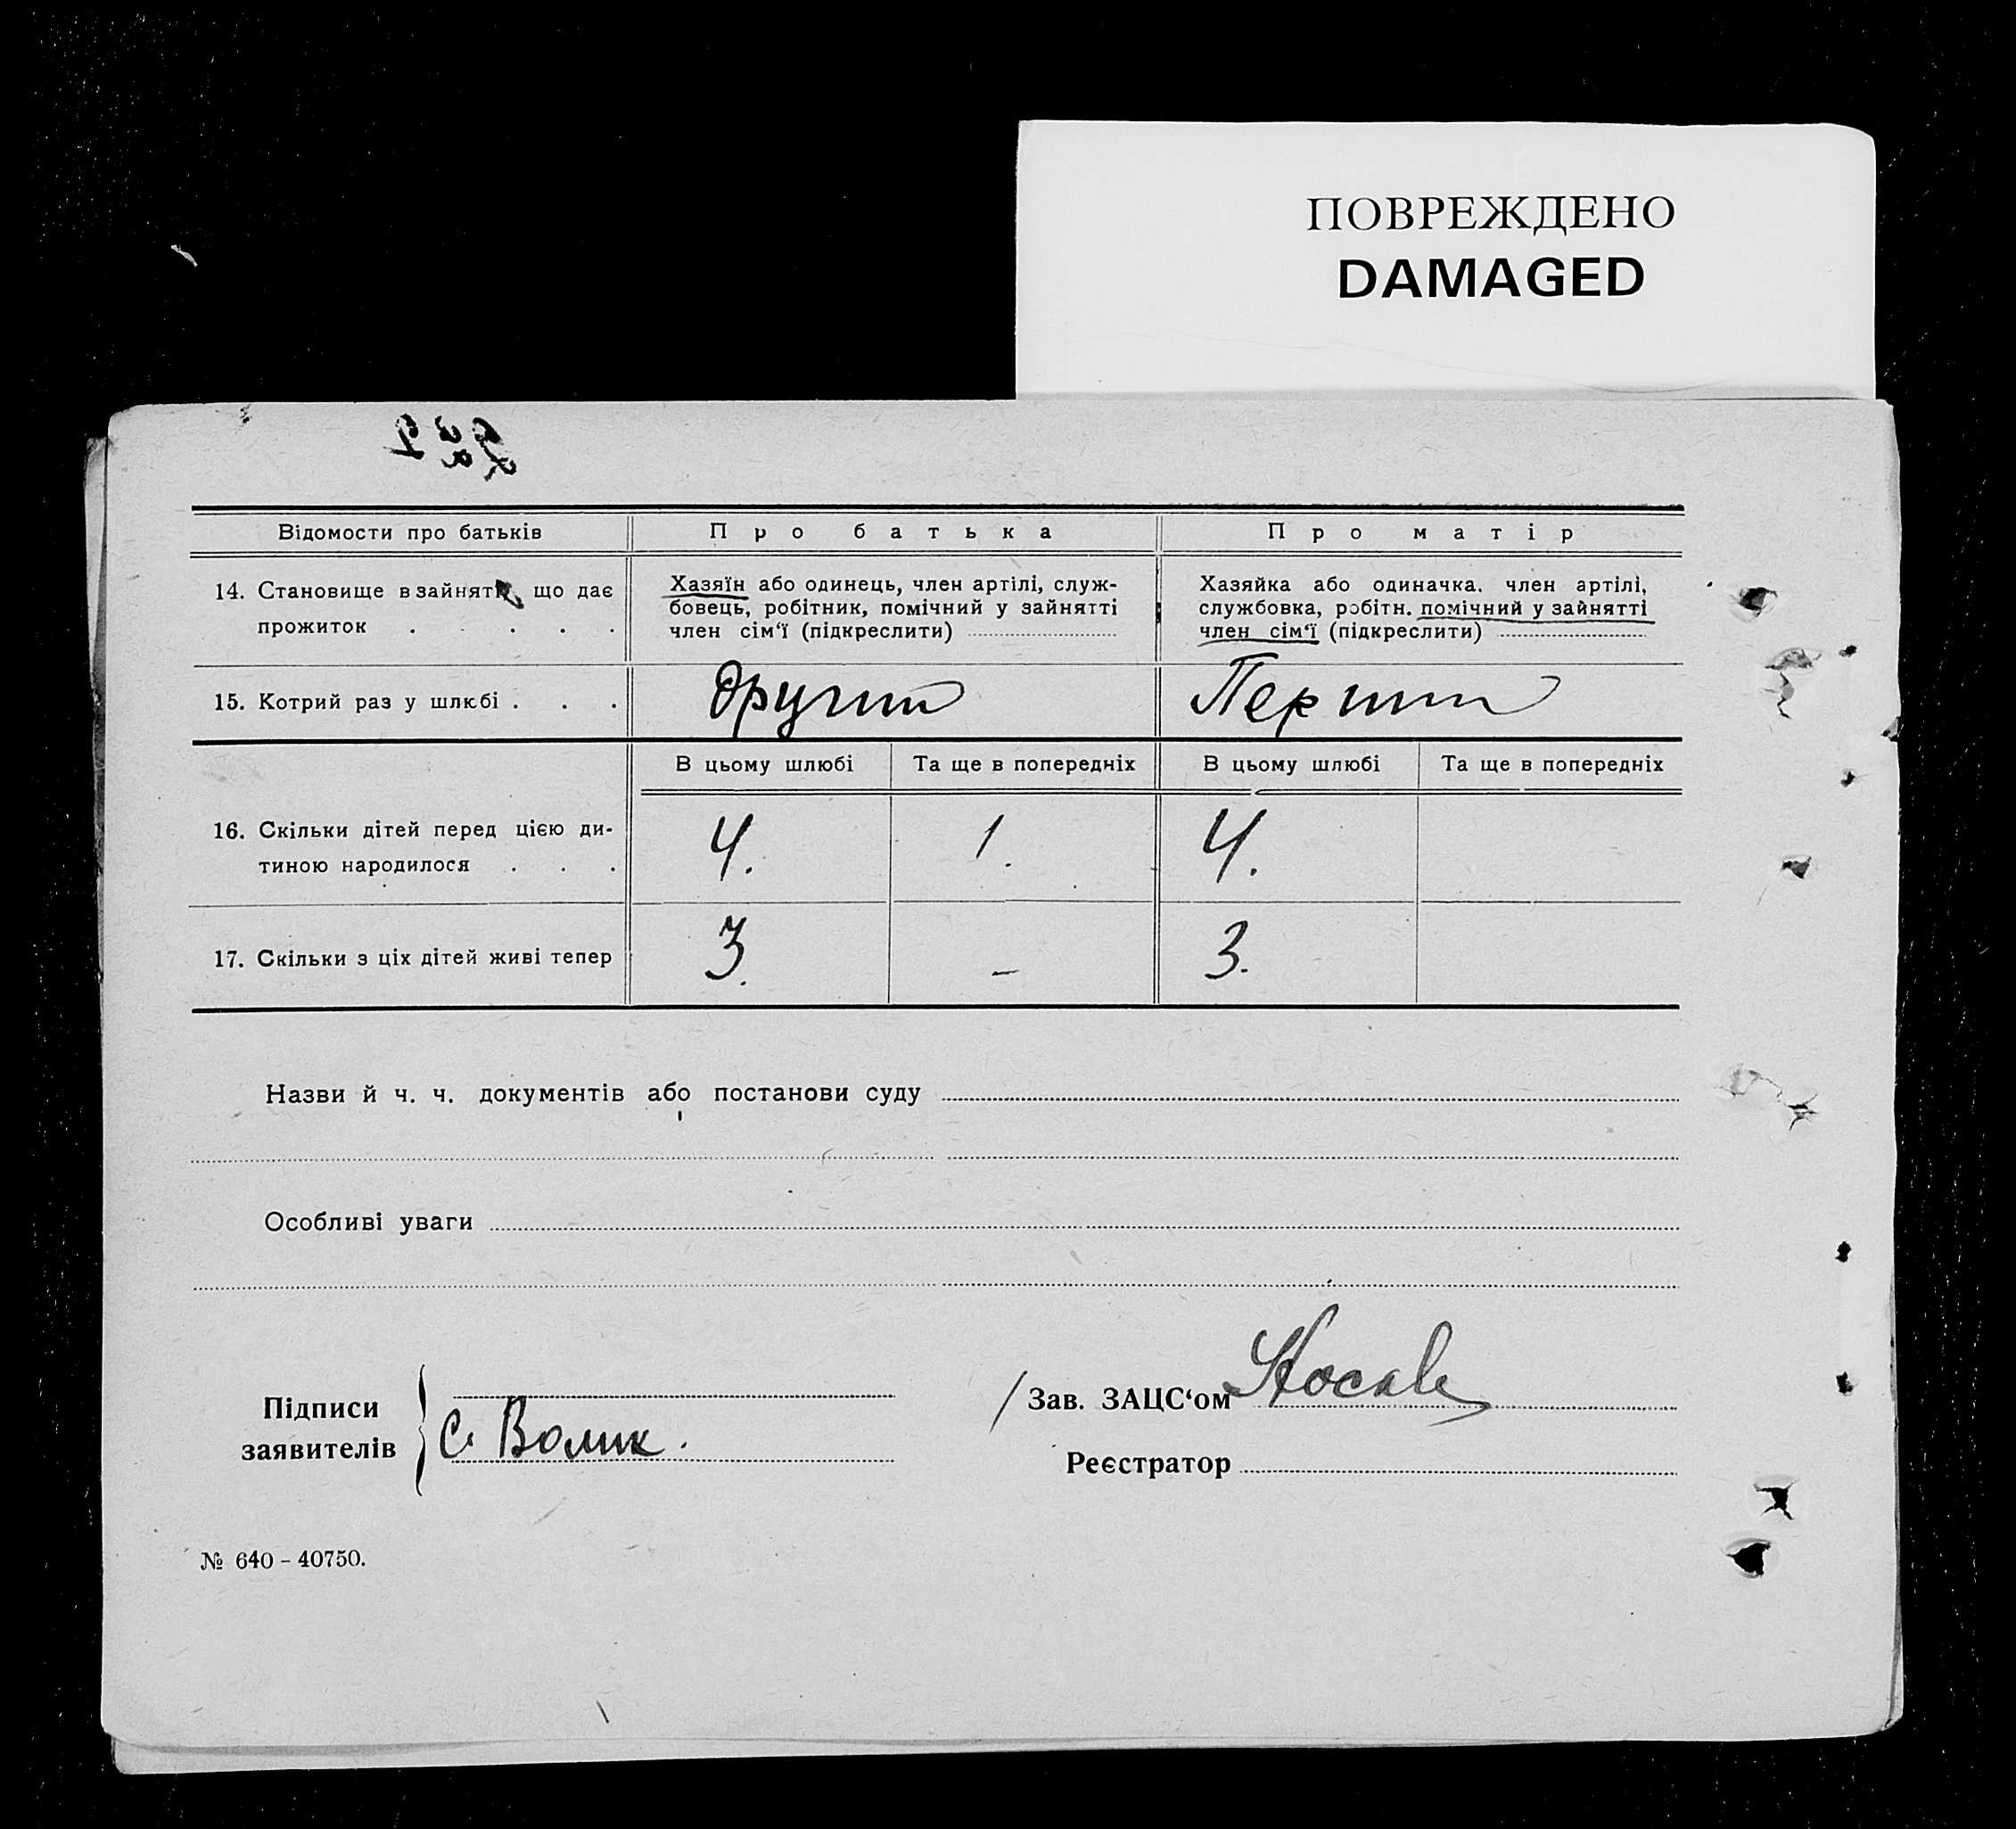 ПОВРЕЖДЕНО
DAMAGED
Відомости про батьків
Про батька
Про матір
14. Становище в зайнятті, що дає
прожиток . . . . .
Хазяїн або одинець, член артілі, служ-
бовець, робітник, помічний у зайнятті
член сім‘ї (підкреслити)
Хазяйка або одиначка, член артілі,
службовка, робітн. помічний у зайнятті
член сім‘ї (підкреслити)
15. Котрий раз у шлюбі . . .
другий
Перший
В цьому шлюбі
Та ще в попередніх
В цьому шлюбі
Та ще в попередніх
16. Скільки дітей перед цією ди-
тиною народилося . . .
4.
1.
4.
17. Скільки з ціх дітей живі тепер
3.
–
3.
Назви й ч. ч. документів або постанови суду
Особливі уваги
Підписи
заявителів
С. Волик.
Зав. ЗАЦС‘ом
Реєстратор
№ 640 - 40750.